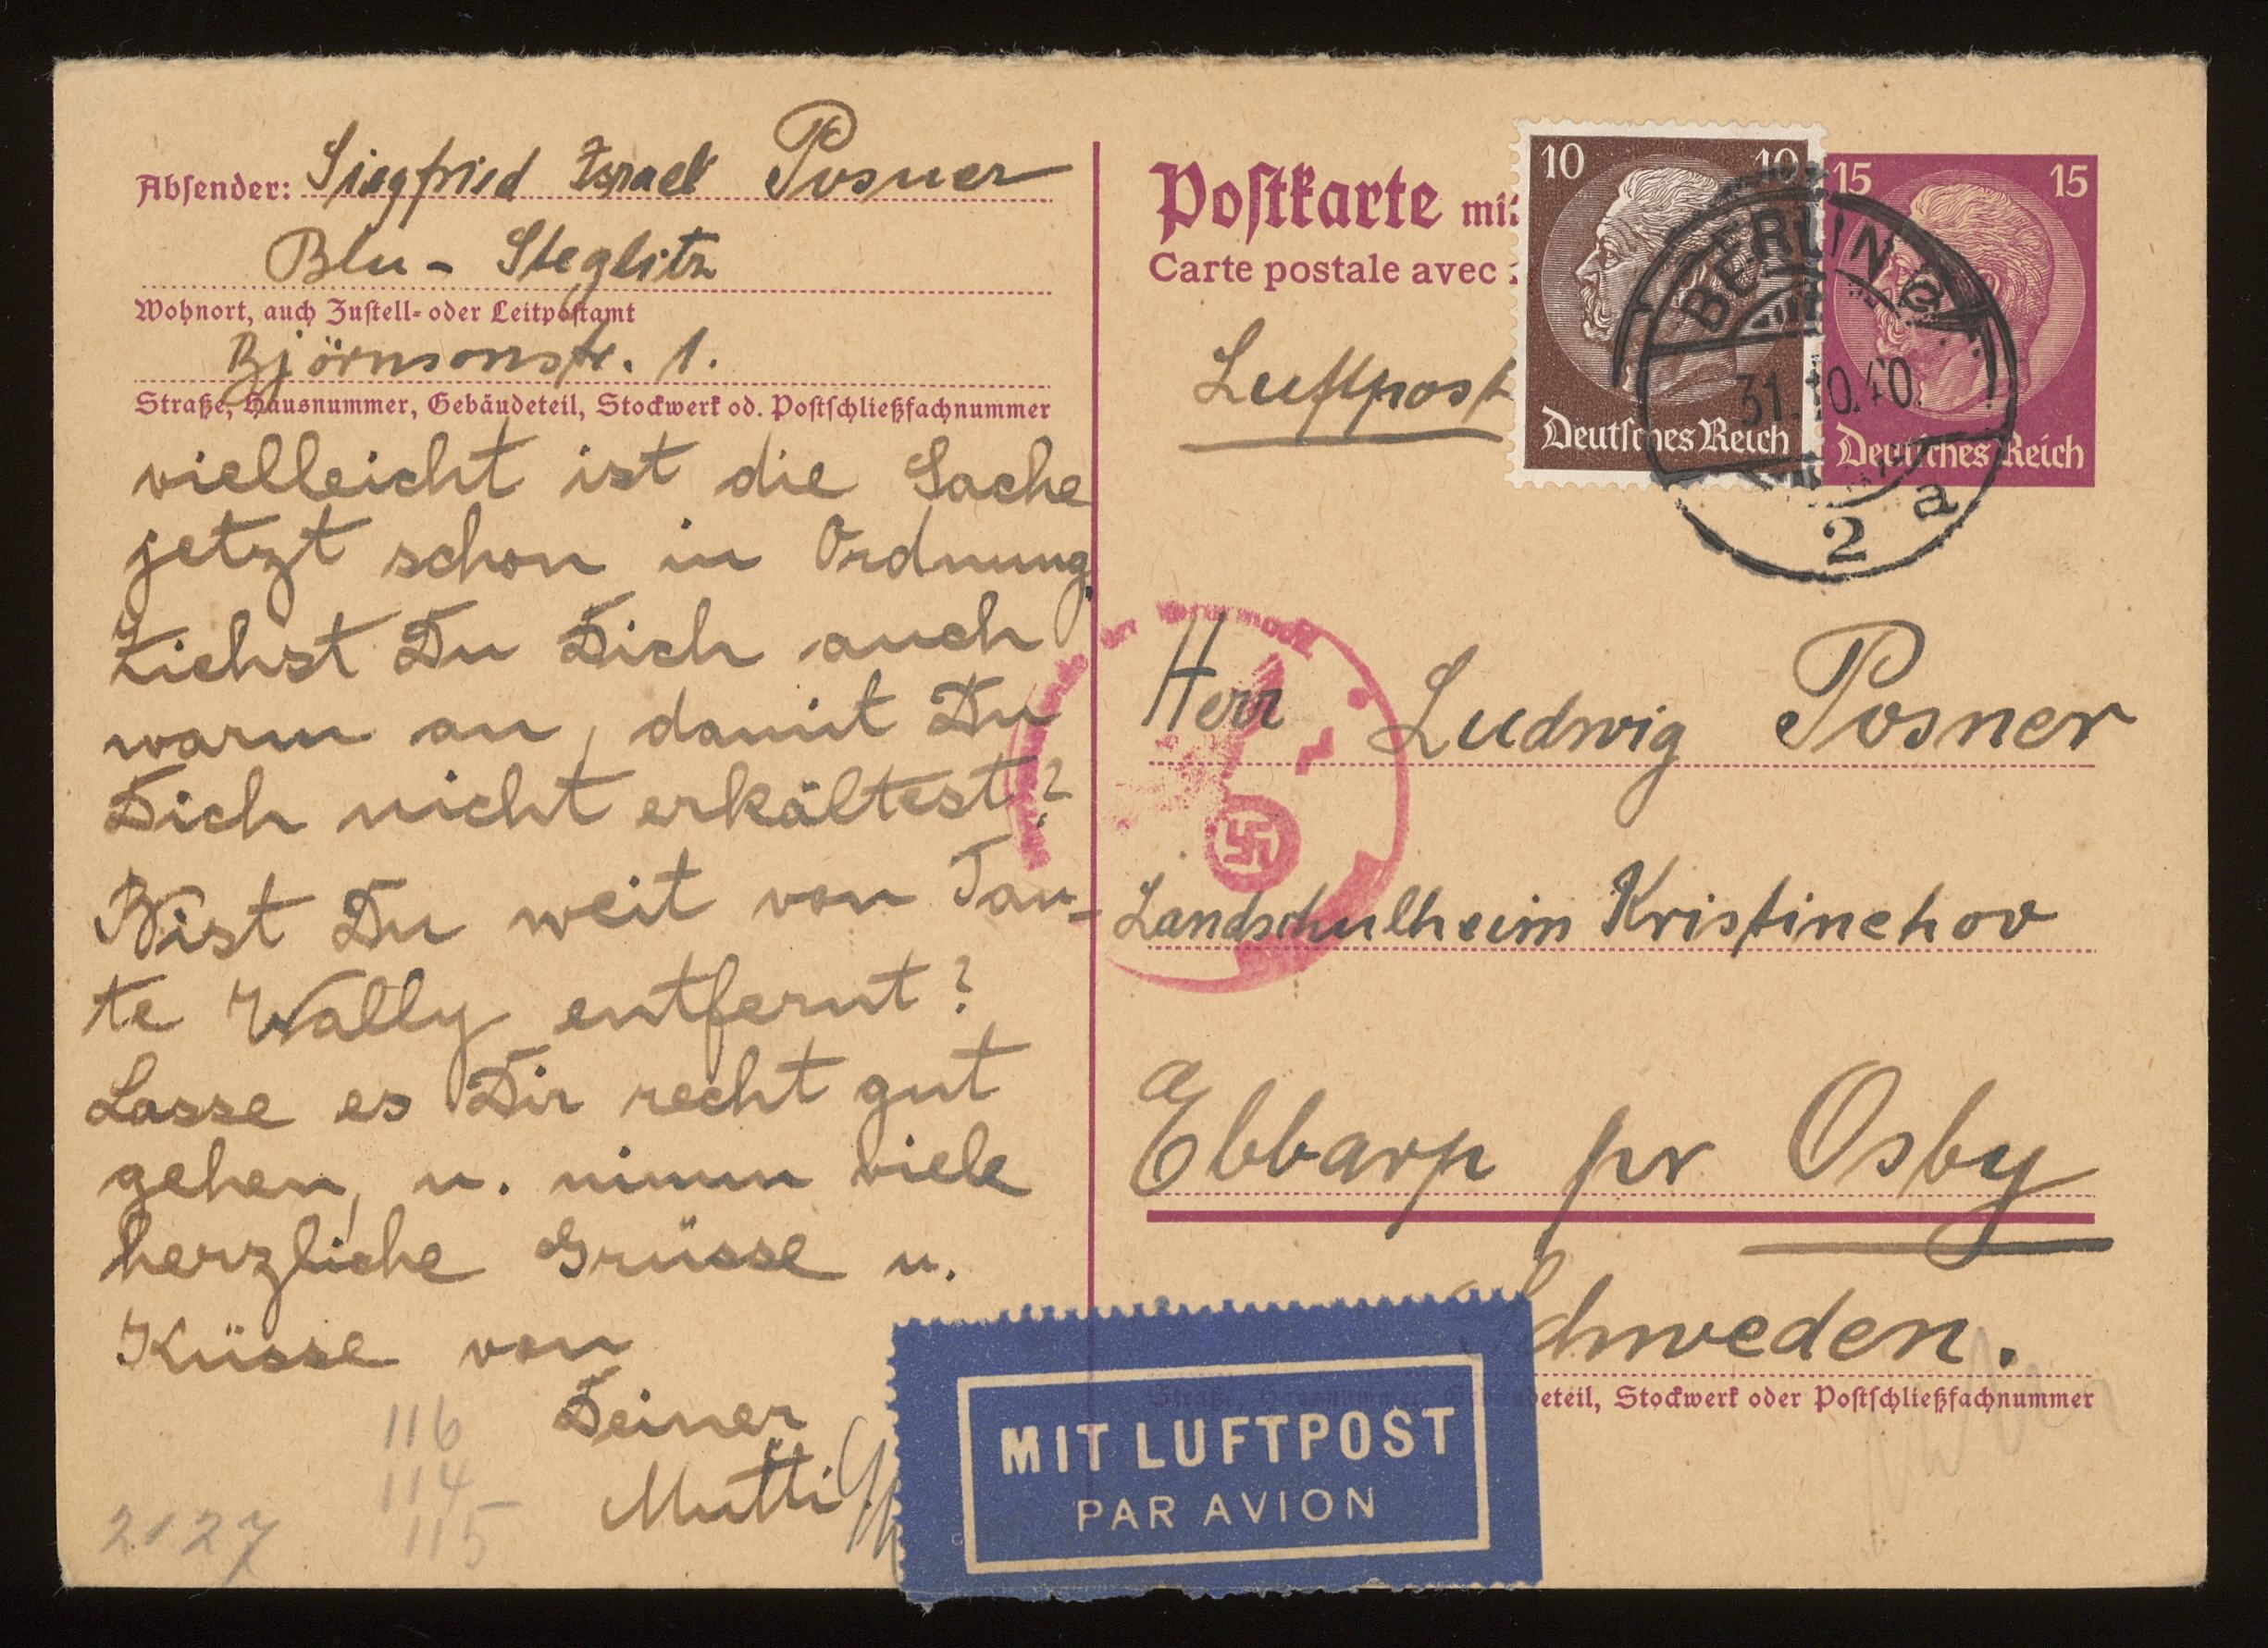 Absender: Siegfried Israel Posner
Bln - Steglitz
Wohnort, auch Zustell- oder Leitpostamt
Björnsonstr. 1.
Straße, Hausnummer, Gebäudeteil, Stockwerk od. Postschließfachnummer
vielleicht ist die Sache
jetzt schon in Ordnung.
Ziehst Du Dich auch
warm an, damit Du
Dich nicht erkältest?
Bist Du weit von Tan-
te Wally entfernt?
Lasse es Dir recht gut
gehen, u. nimm viele
herzliche Grüsse u.
Küsse von
Deiner
Mutti
116
114
115
2127
Postkarte mit
Carte postale avec
Luftpost
10 10
Deutsches Reich
15 15
Deutsches Reich
BERLIN C
31.10.40
2 a
Herr Ludwig Posner
Landschulheim Kristinehov
Ebbarp pr Osby
Schweden.
Stockwerk oder Postschließfachnummer
MIT LUFTPOST
PAR AVION